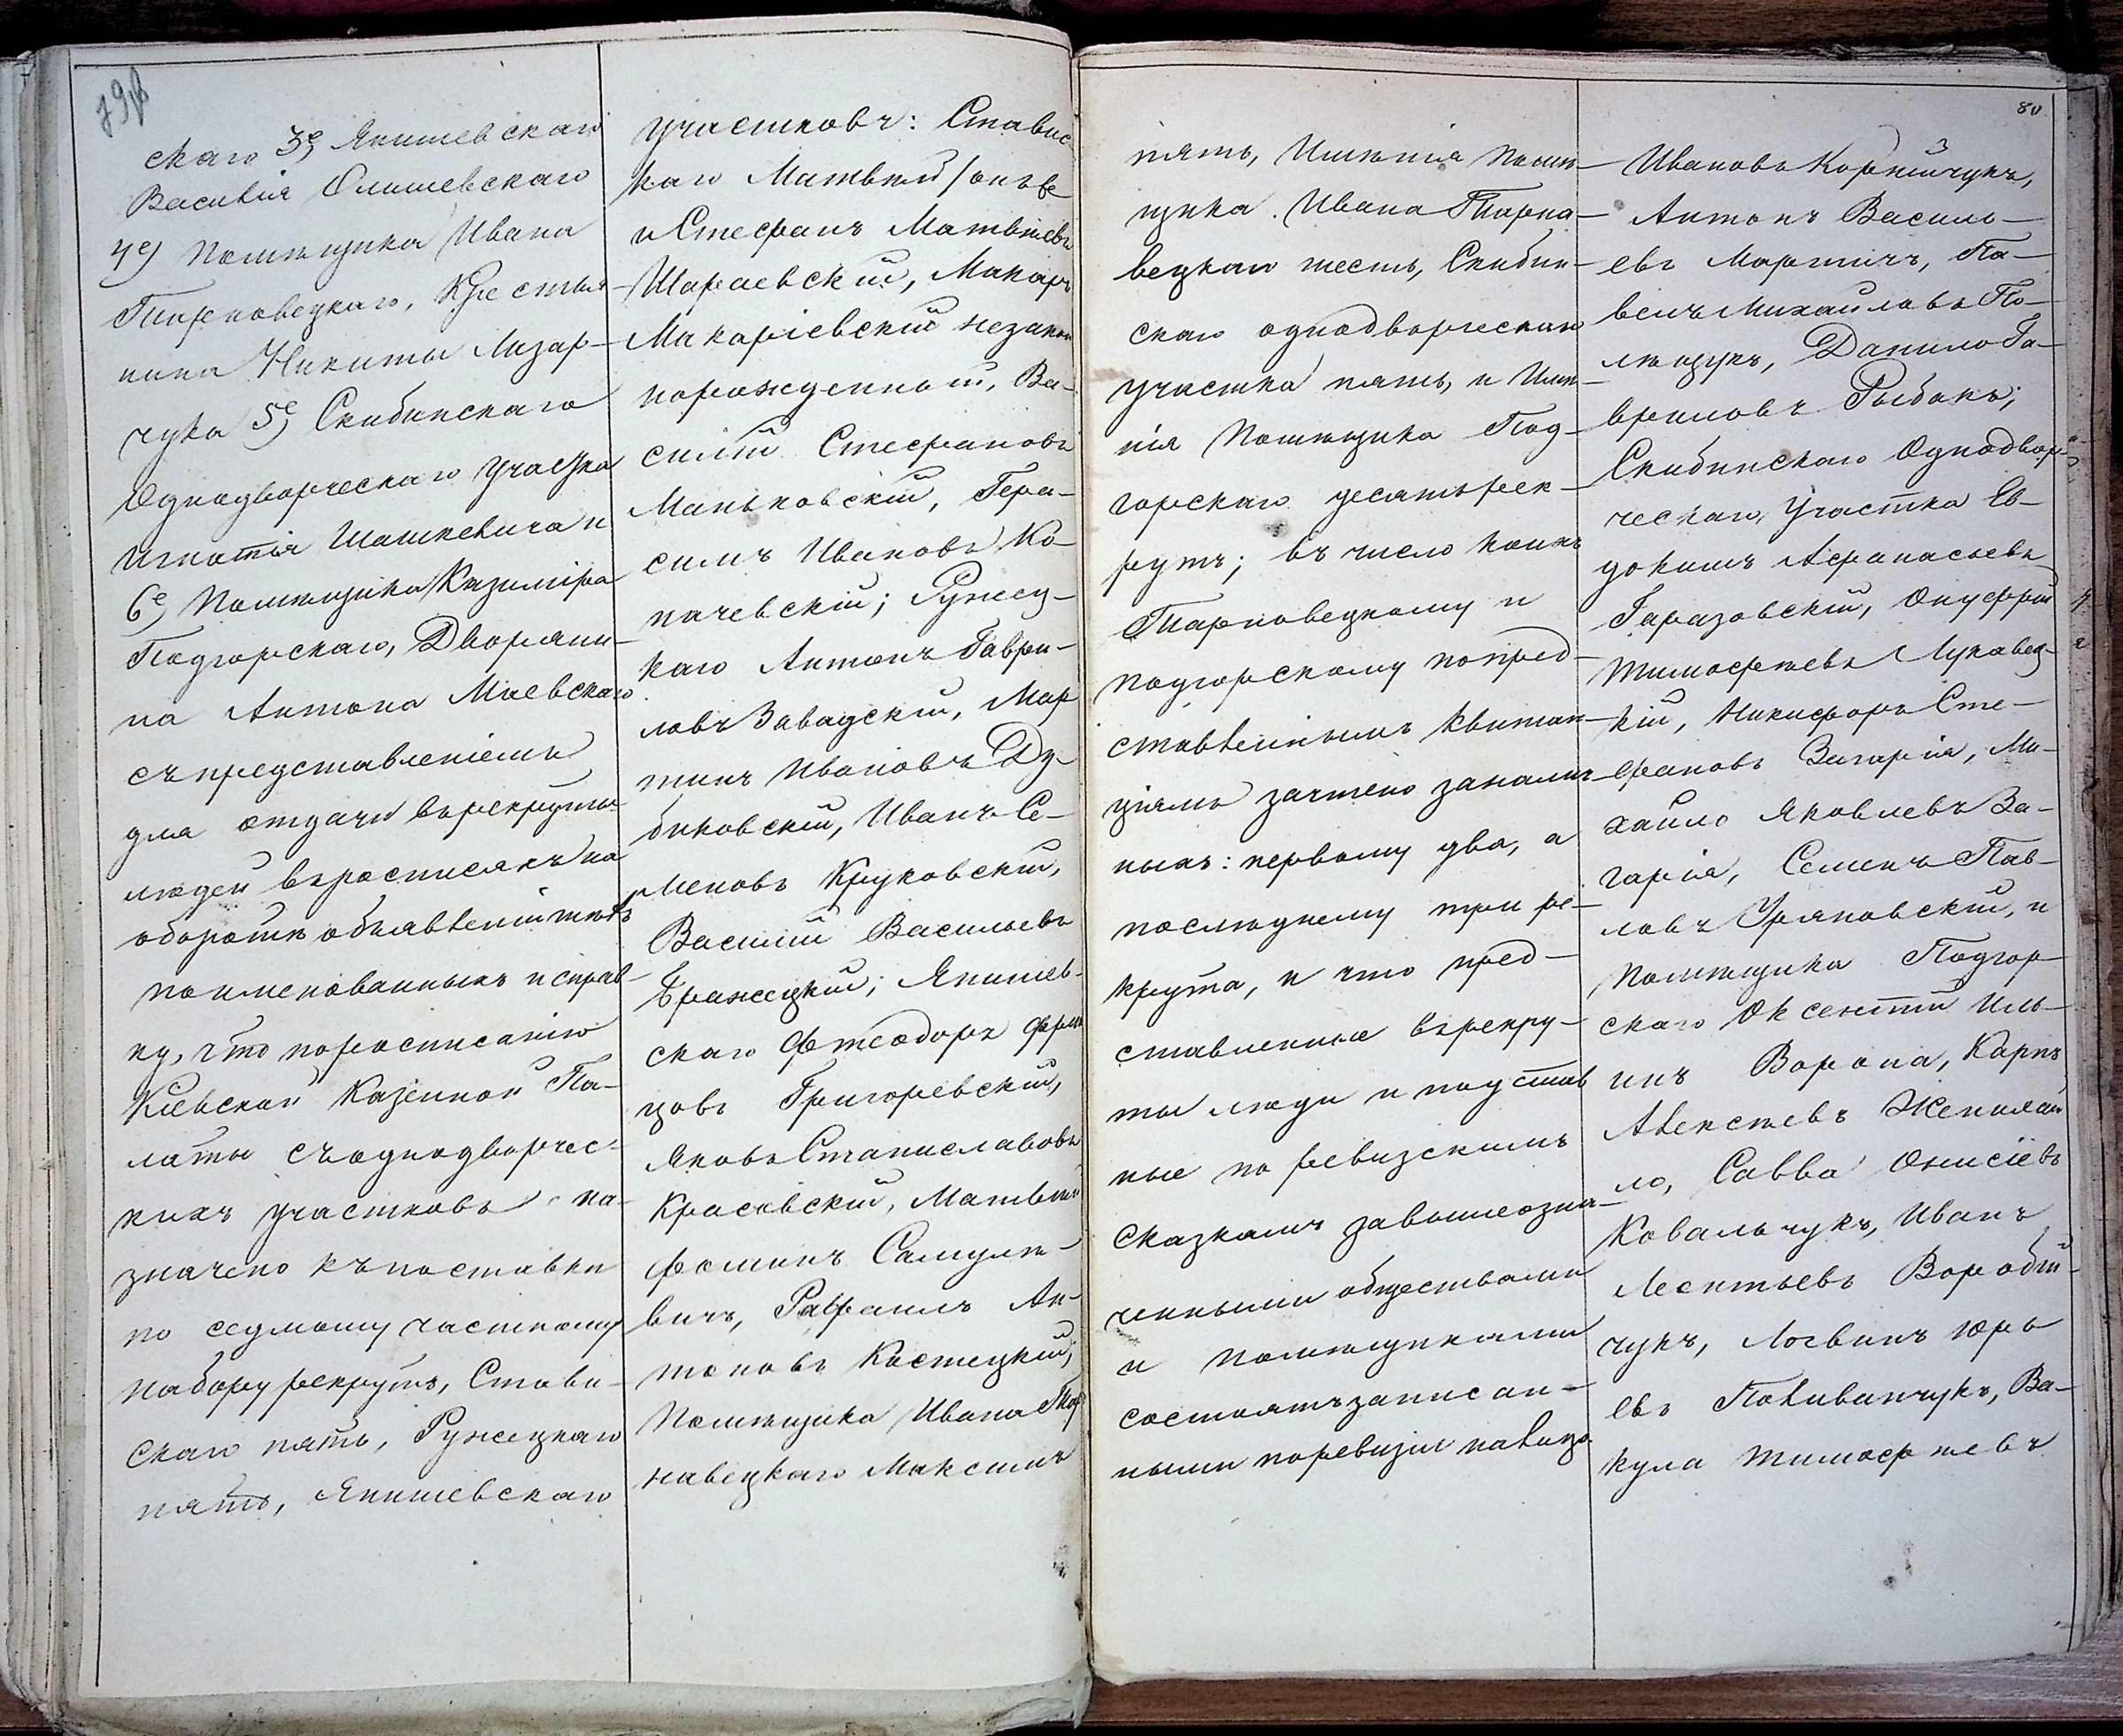 79 об
скаго 3е) Янишевскаго
Василія Олишевскаго
4е) Помѣщика Ивана
Тарновецкаго, Крестья-
нина Никиты Лазар-
чука 5е) Скибинскаго
Однодворческаго участка
Игнатія Шашкевича и
6е) Помѣщика Казиміра
Подгорскаго, Дворяни-
на Антона Маевскаго
съ представленіемъ
для отдачи въ рекруты
людей въ росписяхъ на
оборотѣ объявленій ихъ
поименованныхъ и справ-
ку, что по росписанію
Кіевской Казенной Па-
латы съ однодворчес-
кихъ участковъ на-
значено къ поставки
по седмому частному
набору рекрутъ, Стави-
скаго пять, Ружецкаго
пять, Янишевскаго
участковъ: Ставис
каго Матвѣй
и Стефанъ Матвѣевъ
Шараевскій, Макаръ
Макаріевскій незакон
норожденный, Ва-
силій Стефановъ
Маньковскій, Гера-
симъ Ивановъ Ко-
пачевскій; Ружец-
каго Антонъ Гаври-
ловъ Завадскій, Мар
тинъ Ивановъ Ду-
биковскій, Иванъ Се-
меновъ Круковскій,
Василій Васильевъ
Бражецкій; Янишев-
скаго Фѣеодоръ
цовъ Григоревскій,
Яковъ Станиславовъ
Красовскій, Матвѣй
Фоминъ Самуле-
вичъ, Рафаилъ Ан-
тоновъ Костецкій;
Помѣщика Ивана Тар
навецкаго Максимъ
80
пять, Имѣнія помѣ-
щика Ивана Тарна-
вецкаго шесть, Скибин-
скаго однодворческаго
участка пять, и Имѣ-
нія Помѣщика Под-
горскаго десять рек-
рутъ; въ число коихъ
Тарновецкому и
подгорскому по пред-
ставленнымъ квитан-
ціямъ зачтено за налич-
ныхъ: первому два, а
послѣднему три ре-
крута, и что пред-
ставленные въ рекру-
ты люди и подстав
ные по ревизскимъ
сказкамъ за вышеозна-
ченными обществами
и помѣщиками
состоятъ записан-
ными по ревизіи на лицо
Ивановъ Корнійчукъ,
Антонъ Василь-
евъ Маргничъ, Па-
велъ Михайловъ По-
лѣщукъ, Данило Га-
вриловъ Рыбакъ;
Скибинскаго Однодвор-
ческаго Участка Ев-
докимъ Афанасьевъ
Гаразовскій, Онуфрій
Тимофѣевъ Лукавец-
кій, Никифоръ Сте-
фановъ Загарія, Ми-
хайло Яковлевъ За-
гарія, Семенъ Пав-
ловъ Уляновскій, и
Помѣщика Подгор-
скаго Оксентій Иль-
инъ Ворона, Карпъ
Алексѣевъ
ло, Савва Онисіевъ
Ковальчукъ, Иванъ
Леонтьевъ Воробій-
чукъ, Логвинъ Юрь
евъ Поливанчукъ, Ва-
кула Тимофѣевъ